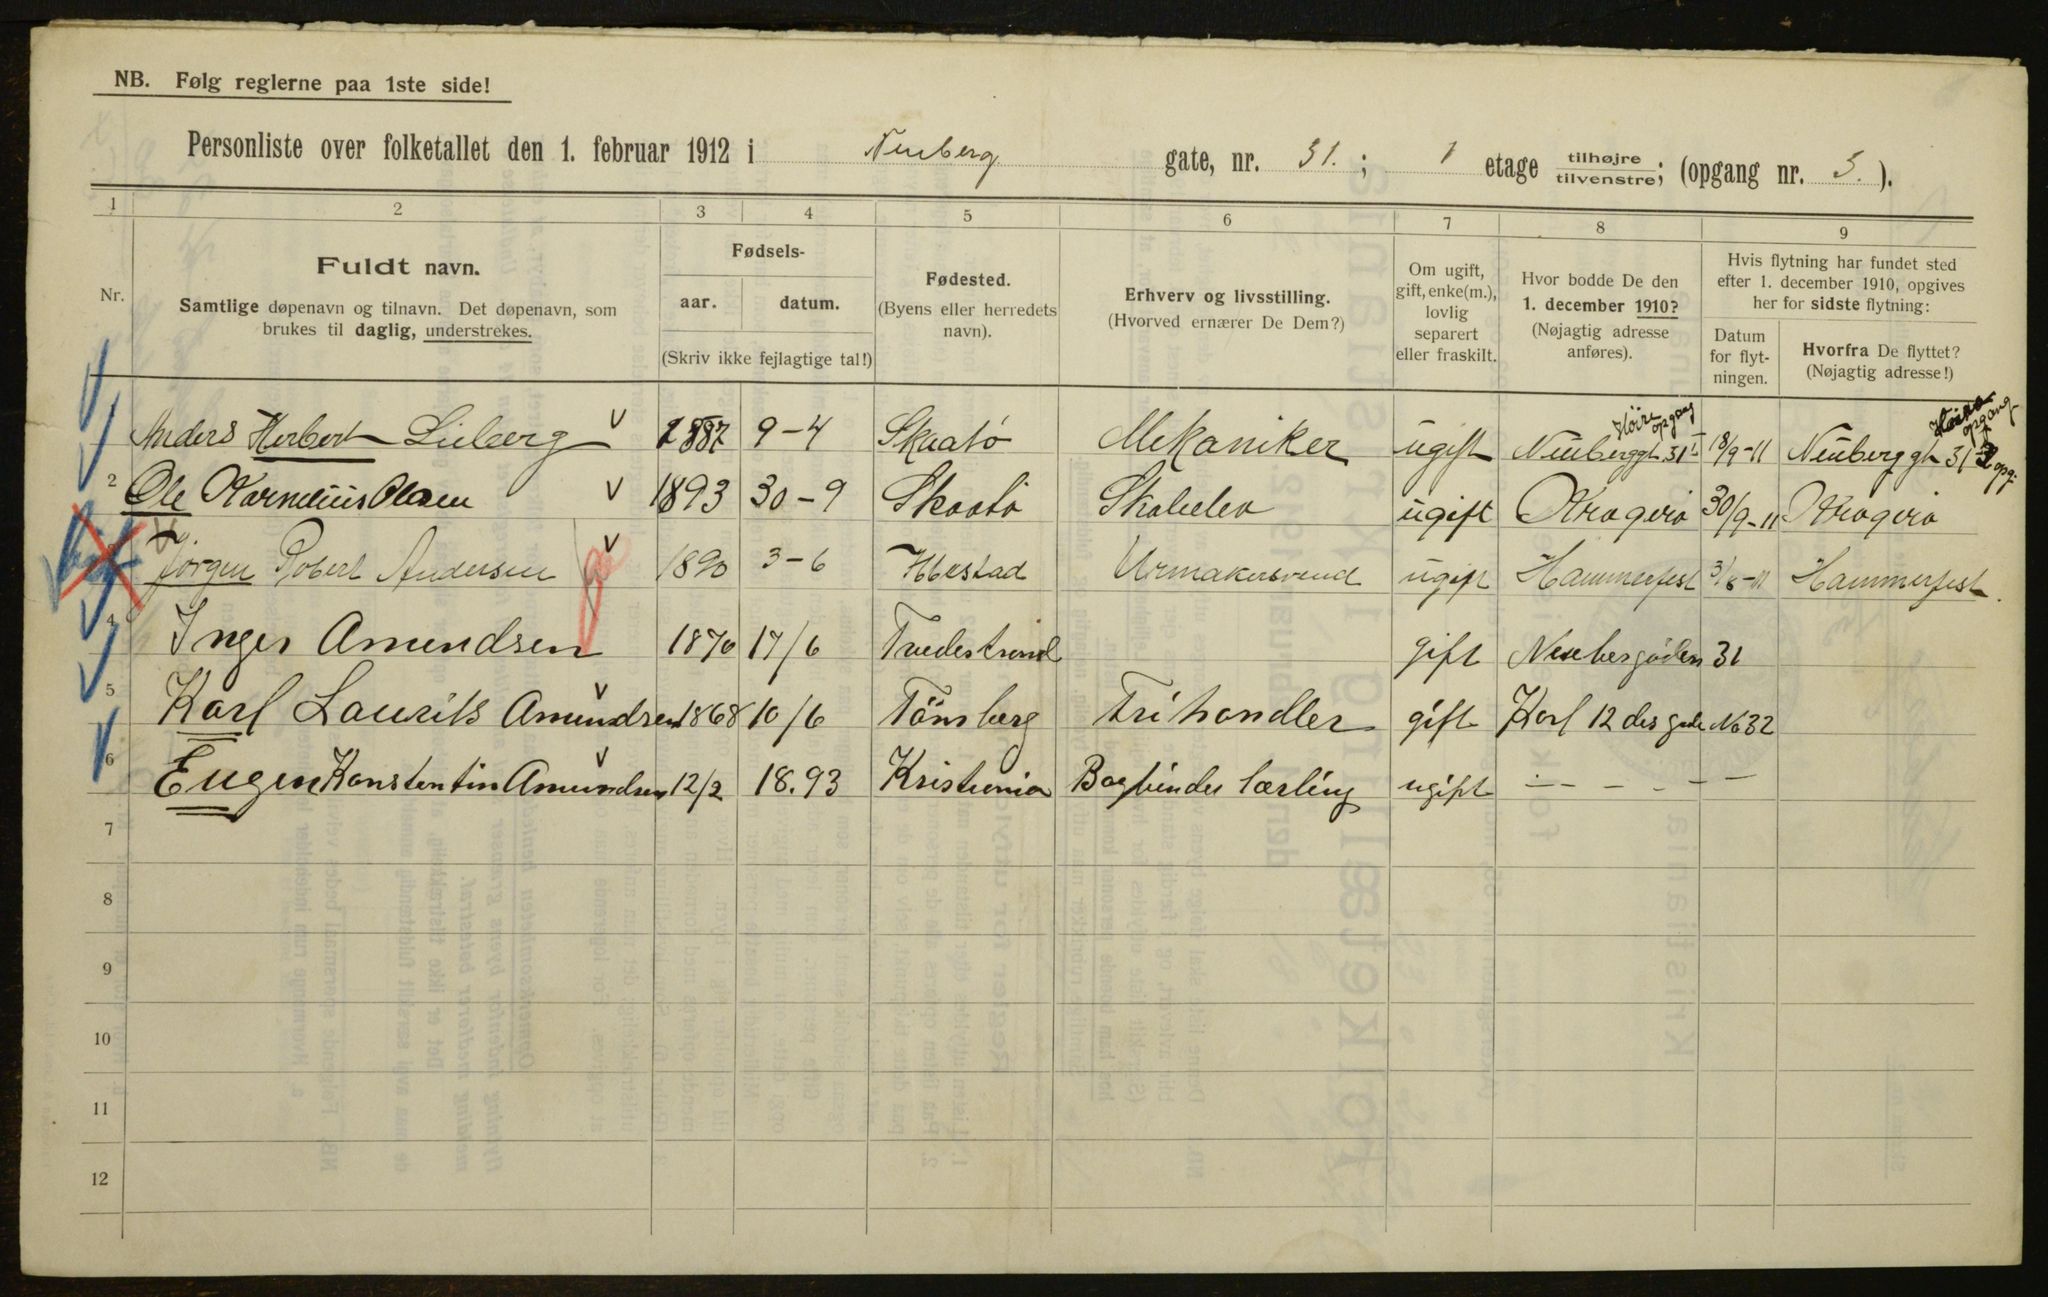 NB. Følg reglerne paa 1ste side!
Personliste over folketallet den 1. februar 1912 i Neuberg gate, nr. 31. ; 1 etage tilhøjre tilvenstre; (opgang nr. 3. ).
1 2 3 4 5 6 7 8 9
Nr.
Fuldt navn.
Samtlige døpenavn og tilnavn. Det døpenavn, som
brukes til daglig, understrekes.
Fødsels-
aar. datum.
(Skriv ikke fejlagtige tal!)
Fødested.
(Byens eller herredets
navn).
Erhverv og livsstilling.
(Hvorved ernærer De Dem?)
Om ugift,
gift, enke(m.),
lovlig
separert
eller fraskilt.
Hvor bodde De den
1. december 1910?
(Nøjagtig adresse
anføres).
Hvis flytning har fundet sted
efter 1. december 1910, opgives
her for sidste flytning:
Datum
for flyt-
ningen.
Hvorfra De flyttet?
(Nøjagtig adresse!)
Anders Herbert 1887 9-4 Skaatø Mekaniker ugift Neuberggt 31 I Høire opgang 18/9-11 Neuberg gt 31 opgang
2 Ole Kornelius Olsen 1893 30-9 Skaatø ugift Kragerø 30/9-11 Kragerø
Jörgen Robert Andersen 1890 3-6 Urmakersvend ugift Hammerfest 3/8-11 Hammerfest.
4 Inger Amundsen 1870 17/6 Tvedestrand gift 31
5 Karl Laurits Amundsen 1868 10/6 Tönsberg Frihandler gift Karl 12 des gade No 32
6 Eugen Konstentin Amundsen 12/2 18.93 Kristiania Bogbinder lærling ugift -- - - - -
7
8
9
10
11
12